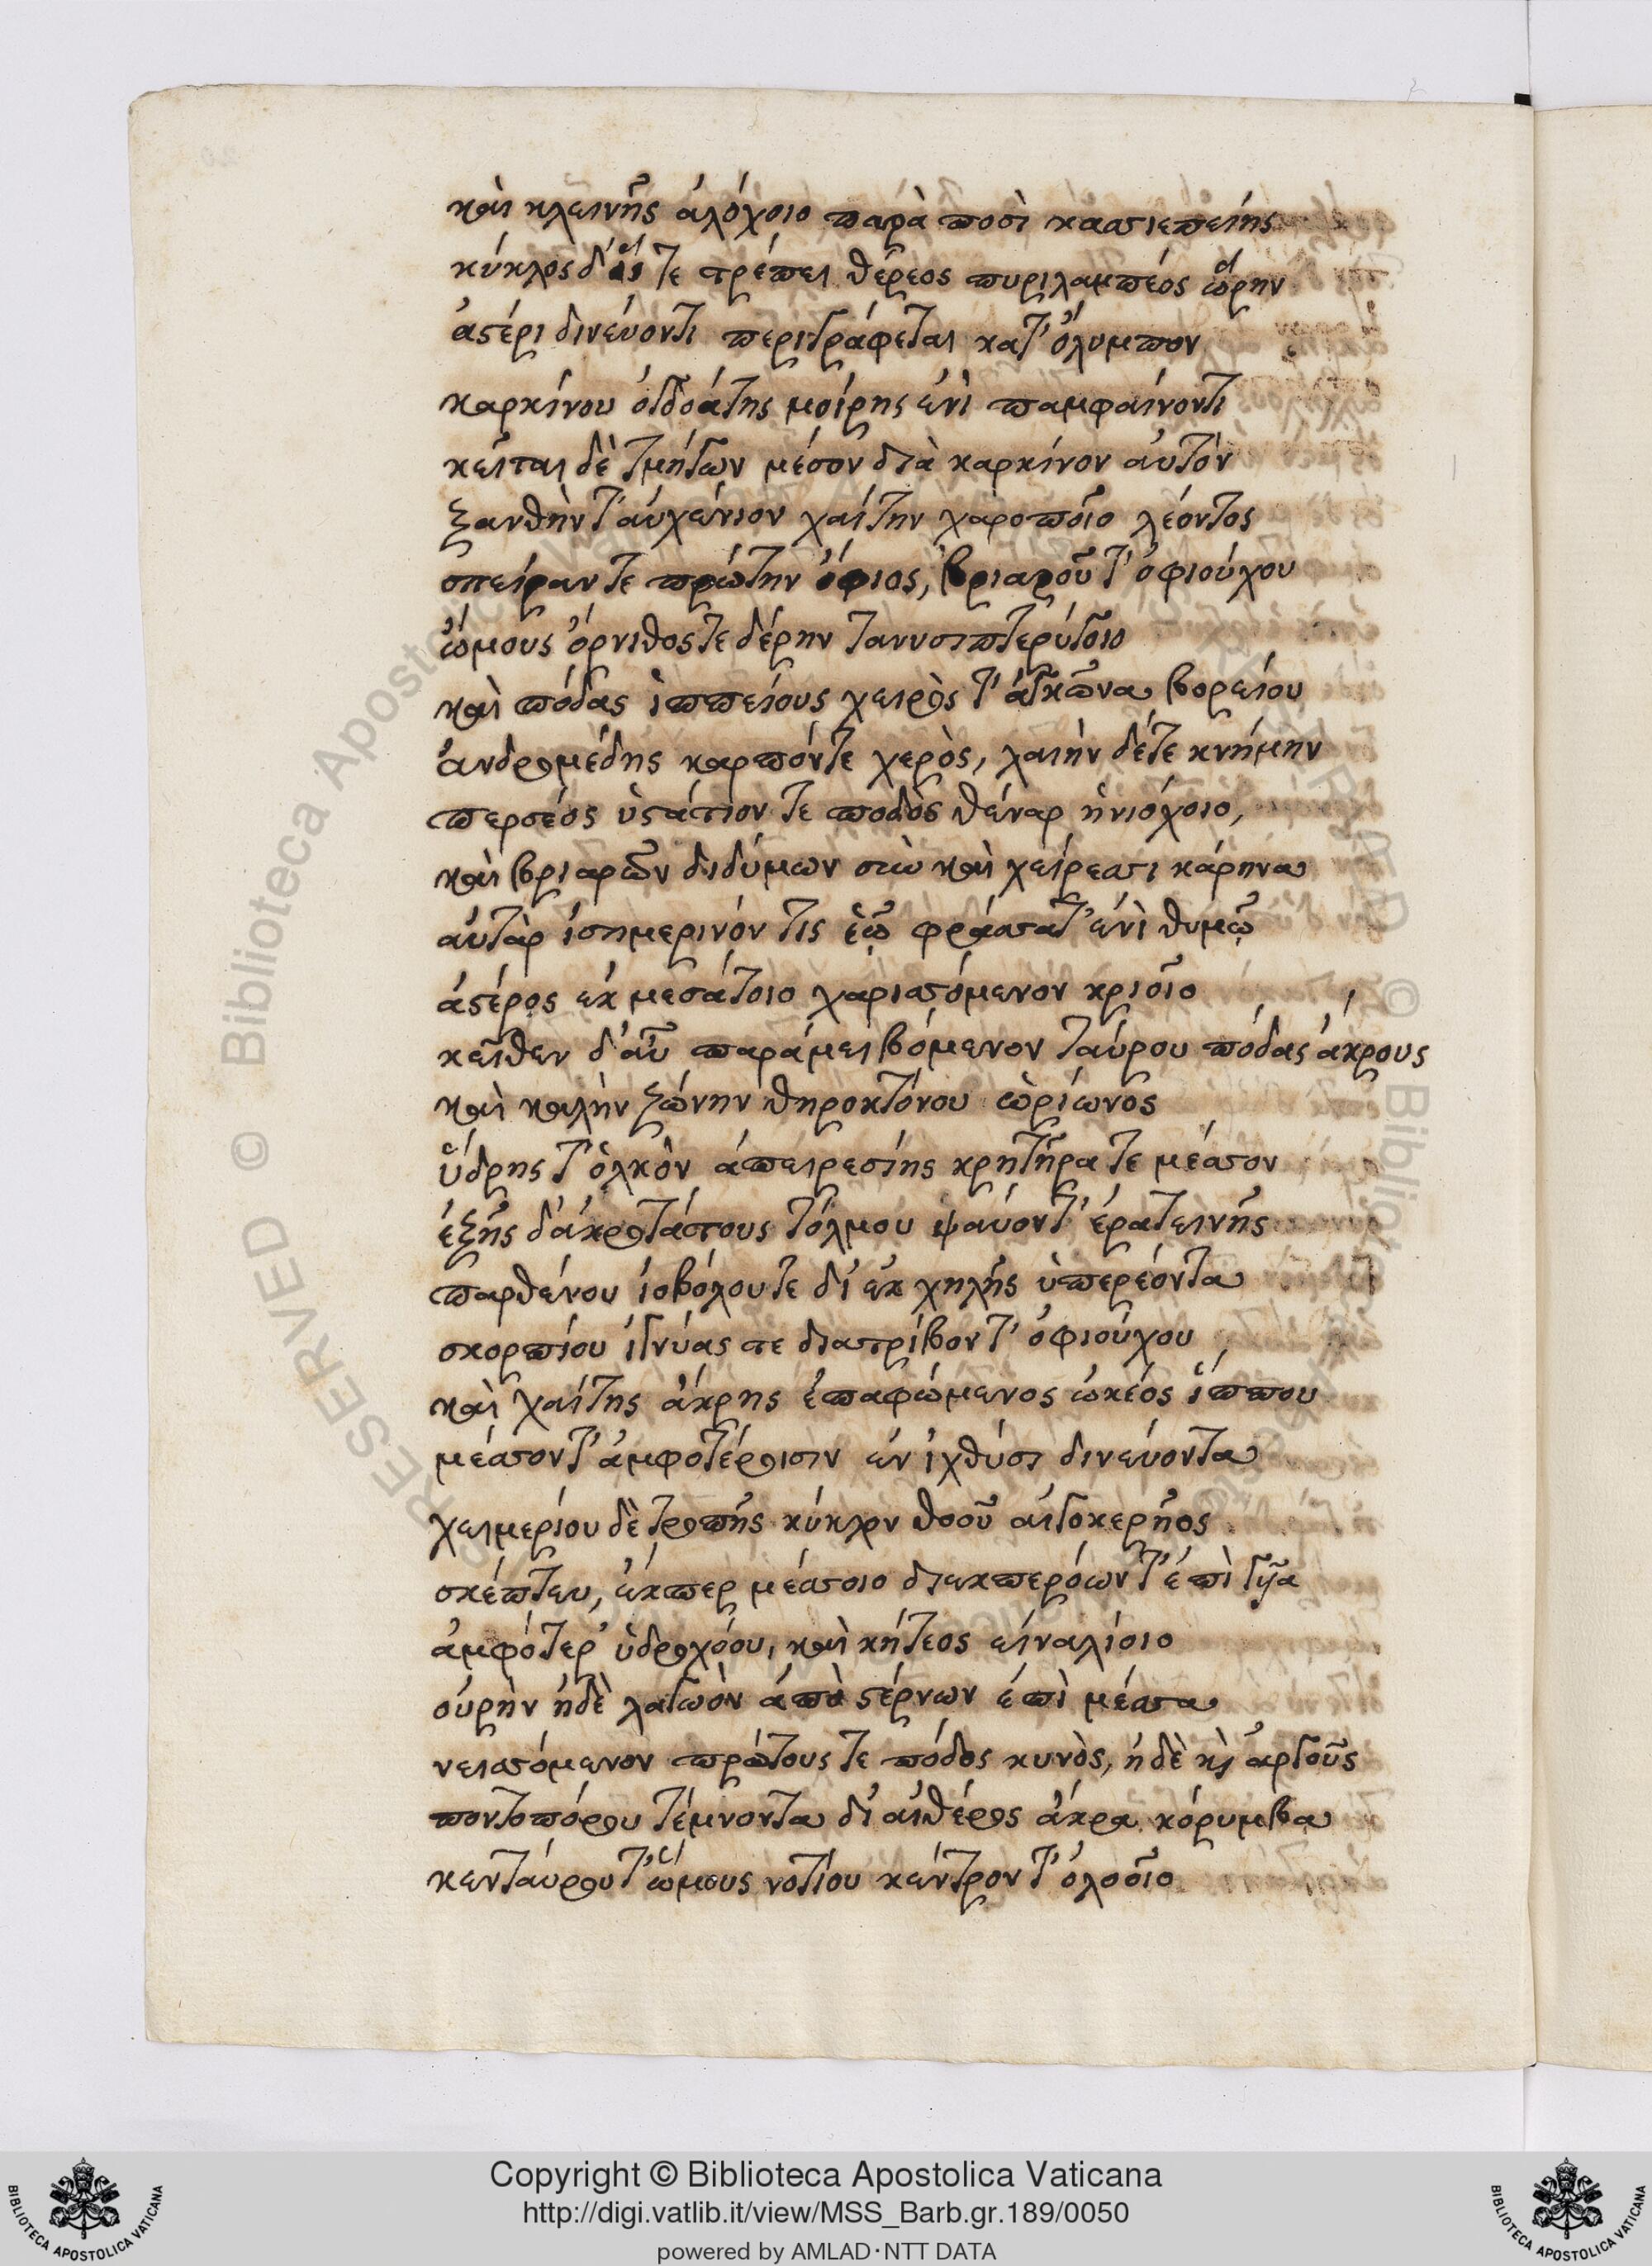 καὶ κλεινῆς ἀλόχοιο παρὰ ποσὶ κασσιεπείης
κύκλος δ' ὅς τε τρέπει θέρεος πυριλαμπέος ὥρην
ἀστέρι δινεύοντι περιγράφεται κατ' ὄλυμπον
καρκίνου ὀγδοάτης μοίρης ἐνὶ παμφαίνοντι
κεῖται δὲ τμήγων μέσον διὰ καρκίνον αὐτὸν
ξανθήν τ' αὐχένιον χαίτην χαροποῖο λέοντος
σπείραν τε πρώτην ὄφιος, βριαροῦ τ' ὀφιούχου
ὤμους ὄρνιθος τε δέρην τανυσιπτερύγοιο
καὶ πόδας ἱππείους χειρὸς τ' ἀγκῶνα βορείου
ἀνδρομέδης καρπόν τε χερὸς, λαιὴν δέ τε κνήμην
περσέος ὑστάτιον τε ποδὸς θέναρ ἡνιόχοιο,
καὶ βριαρῶν διδύμων σὺν καὶ χείρεσσι κάρηνα
αὐτὰρ ἰσημερινόν τις ἑῷ φράσσατ' ἐνὶ θυμῷ
ἀστέρος ἐκ μεσάτοιο χαρασσόμενον κριοῖο
κεῖθεν δ' αὖ παραμειβόμενον ταύρου πόδας ἄκρους
καὶ καλὴν ζώνην θηροκτόνου ὠρίωνος
ὕδρης τ' ὁλκὸν ἀπειρεσίης κρητῆρα τε μέσσον
ἑξῆς δ' ἀκροτάτους τόλμου ψαύοντ' ἐρατεινῆς
παρθένου ἰοβόλου τε δι' ἐκ χηλῆς ὑπερέοντα
σκορπίου ἰγνύας τε διατρίβοντ' ὀφιούχου
καὶ χαίτης ἄκρης ἐπαφώμενος ὠκέος ἵππου
μέσσον τ' ἀμφοτέροισιν ἐν ἰχθύσι δινεύοντα
χειμερίου δὲ τροπῆς κύκλον θοοῦ αἰγοκερῆος
σκέπτευ, ἐκ περ μέσσοιο διεκπερόωντ' ἐπὶ γῆα
ἀμφότερ' ὑδροχόου, καὶ κήτεος εἰναλίοιο
οὐρὴν ἠδὲ λαγωὸν ἀπὸ στέρνων ἐπὶ μέσσα
νεισσόμενον πρώτους τε πόδος κυνὸς, ἠδὲ κὶ ἀργοῦς
ποντοπόρου τέμνοντα δι' αἰθέρος ἄκρα κόρυμβα
κενταύρου τ' ὤμους νοτίου κέντρον τ' ὀλοοῖο
Copyright © Biblioteca Apostolica Vaticana
http://digi.vatlib.it/view/MSS_Barb.gr.189/0050
powered by AMLAD·NTT DATA